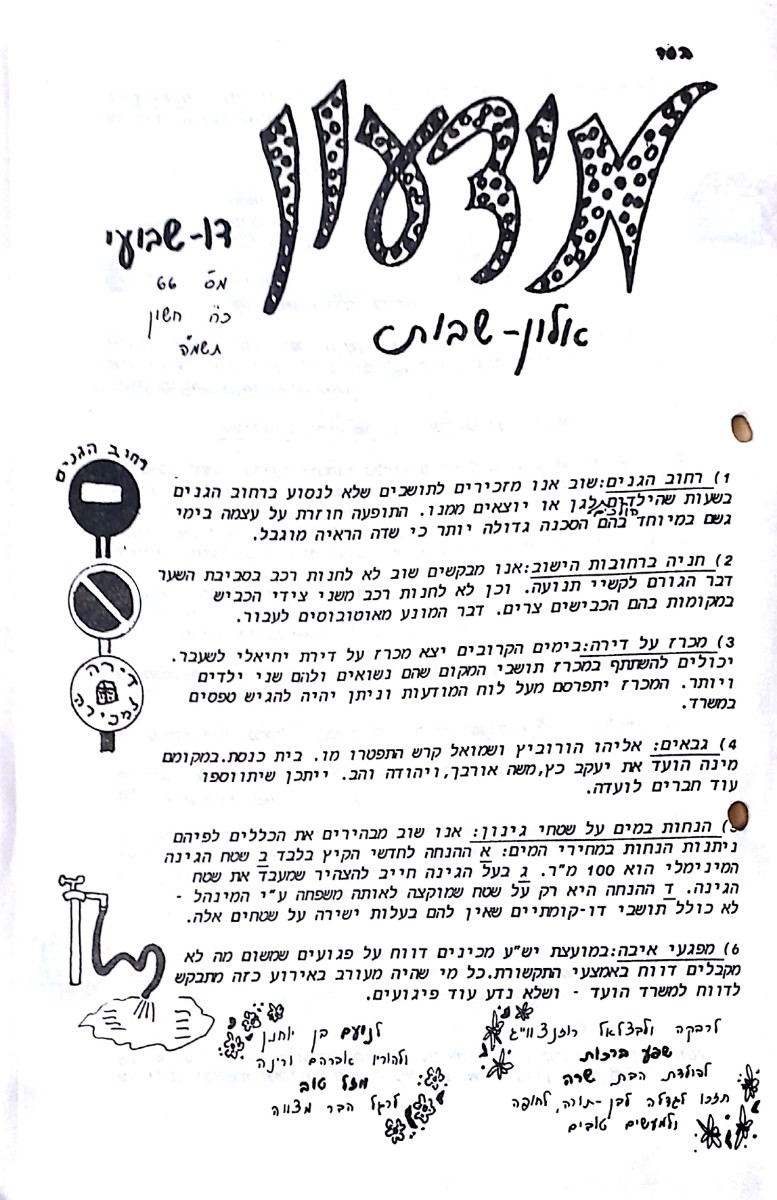 בסד
מידעון
דו-שבועי
מס' 66
כ"ה חשון
תשמ"ה
אלון-שבות
רחוב הגנים
1) רחוב הגנים:שוב אנו מזכירים לתושבים שלא לנסוע ברחוב הגנים
בשעות שהילדים הולכים לגן או יוצאים ממנו. התופעה חוזרת על עצמה בימי
גשם במיוחד בהם הסכנה גדולה יותר כי שדה הראיה מוגבל.
2) חניה ברחובות הישוב:אנו מבקשים שוב לא לחנות רכב בסביבת השער
דבר הגורם לקשיי תנועה. וכן לא לחנות רכב משני צידי הכביש
במקומות בהם הכבישים צרים. דבר המונע מאוטובוסים לעבור.
3) מכרז על דירה:בימים הקרובים יצא מכרז על דירת יחיאלי לשעבר.
יכולים להשתתף במכרז תושבי המקום שהם נשואים ולהם שני ילדים
ויותר. המכרז יתפרסם מעל לוח המודעות וניתן יהיה להגיש טפסים
במשרד.
דירה
למכירה
4) גבאים: אליהו הורוביץ ושמואל קרש התפטרו מו. בית כנסת.במקומם
מינה הועד את יעקב כץ,משה אורבך,ויהודה והב. ייתכן שיתווספו
עוד חברים לועדה.
5) הנחות במים על שטחי גינון: אנו שוב מבהירים את הכללים לפיהם
ניתנות הנחות במחירי המים: א ההנחה לחדשי הקיץ בלבד ב שטח הגינה
המינימלי הוא 100 מ"ר. ג בעל הגינה חייב להצהיר שמעבד את שטח
הגינה. ד ההנחה היא רק על שטח שמוקצה לאותה משפחה ע"י המינהל -
לא כולל תושבי דו-קומתיים שאין להם בעלות ישירה על שטחים אלה.
6) מפגעי איבה:במועצת יש"ע מכינים דווח על פגועים שמשום מה לא
מקבלים דווח באמצעי התקשורת.כל מי שהיה מעורב באירוע כזה מתבקש
לדווח למשרד הועד - ושלא נדע עוד פיגועים.
לרבקה ולבצלאל רוזנצוויג
שפע ברכות
להולדת הבת שרה
תזכו לגדלה לבן-תורה, לחופה
ולמעשים טובים
לנועם בן יוחנן
ולהוריו אברהם ורינה
מזל טוב
לרגל הבר מצווה